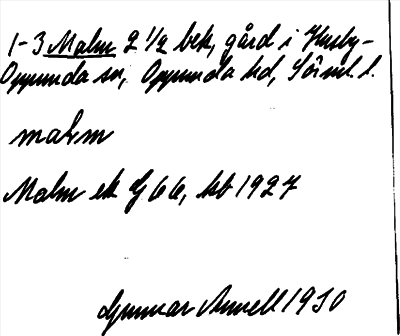 1-3 Malm 2 1/2 bek, gård i Husby-
Oppunda sn, Oppunda hd, Sörml. l.
malm
Malm ek G 66, kb 1927
Gunnar Annell 1930